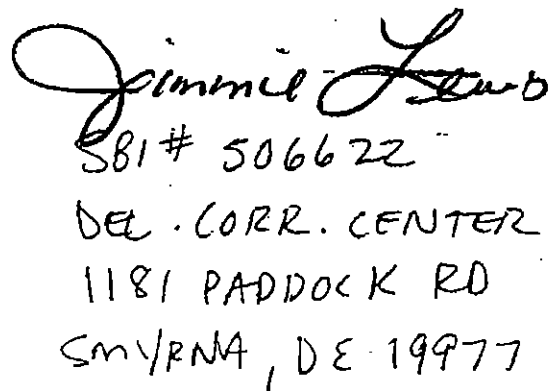 Jimmie Lewis
SBI# 506622
DEL. CORR. CENTER
1181 PADDOCK RD
SMYRNA, DE 19977